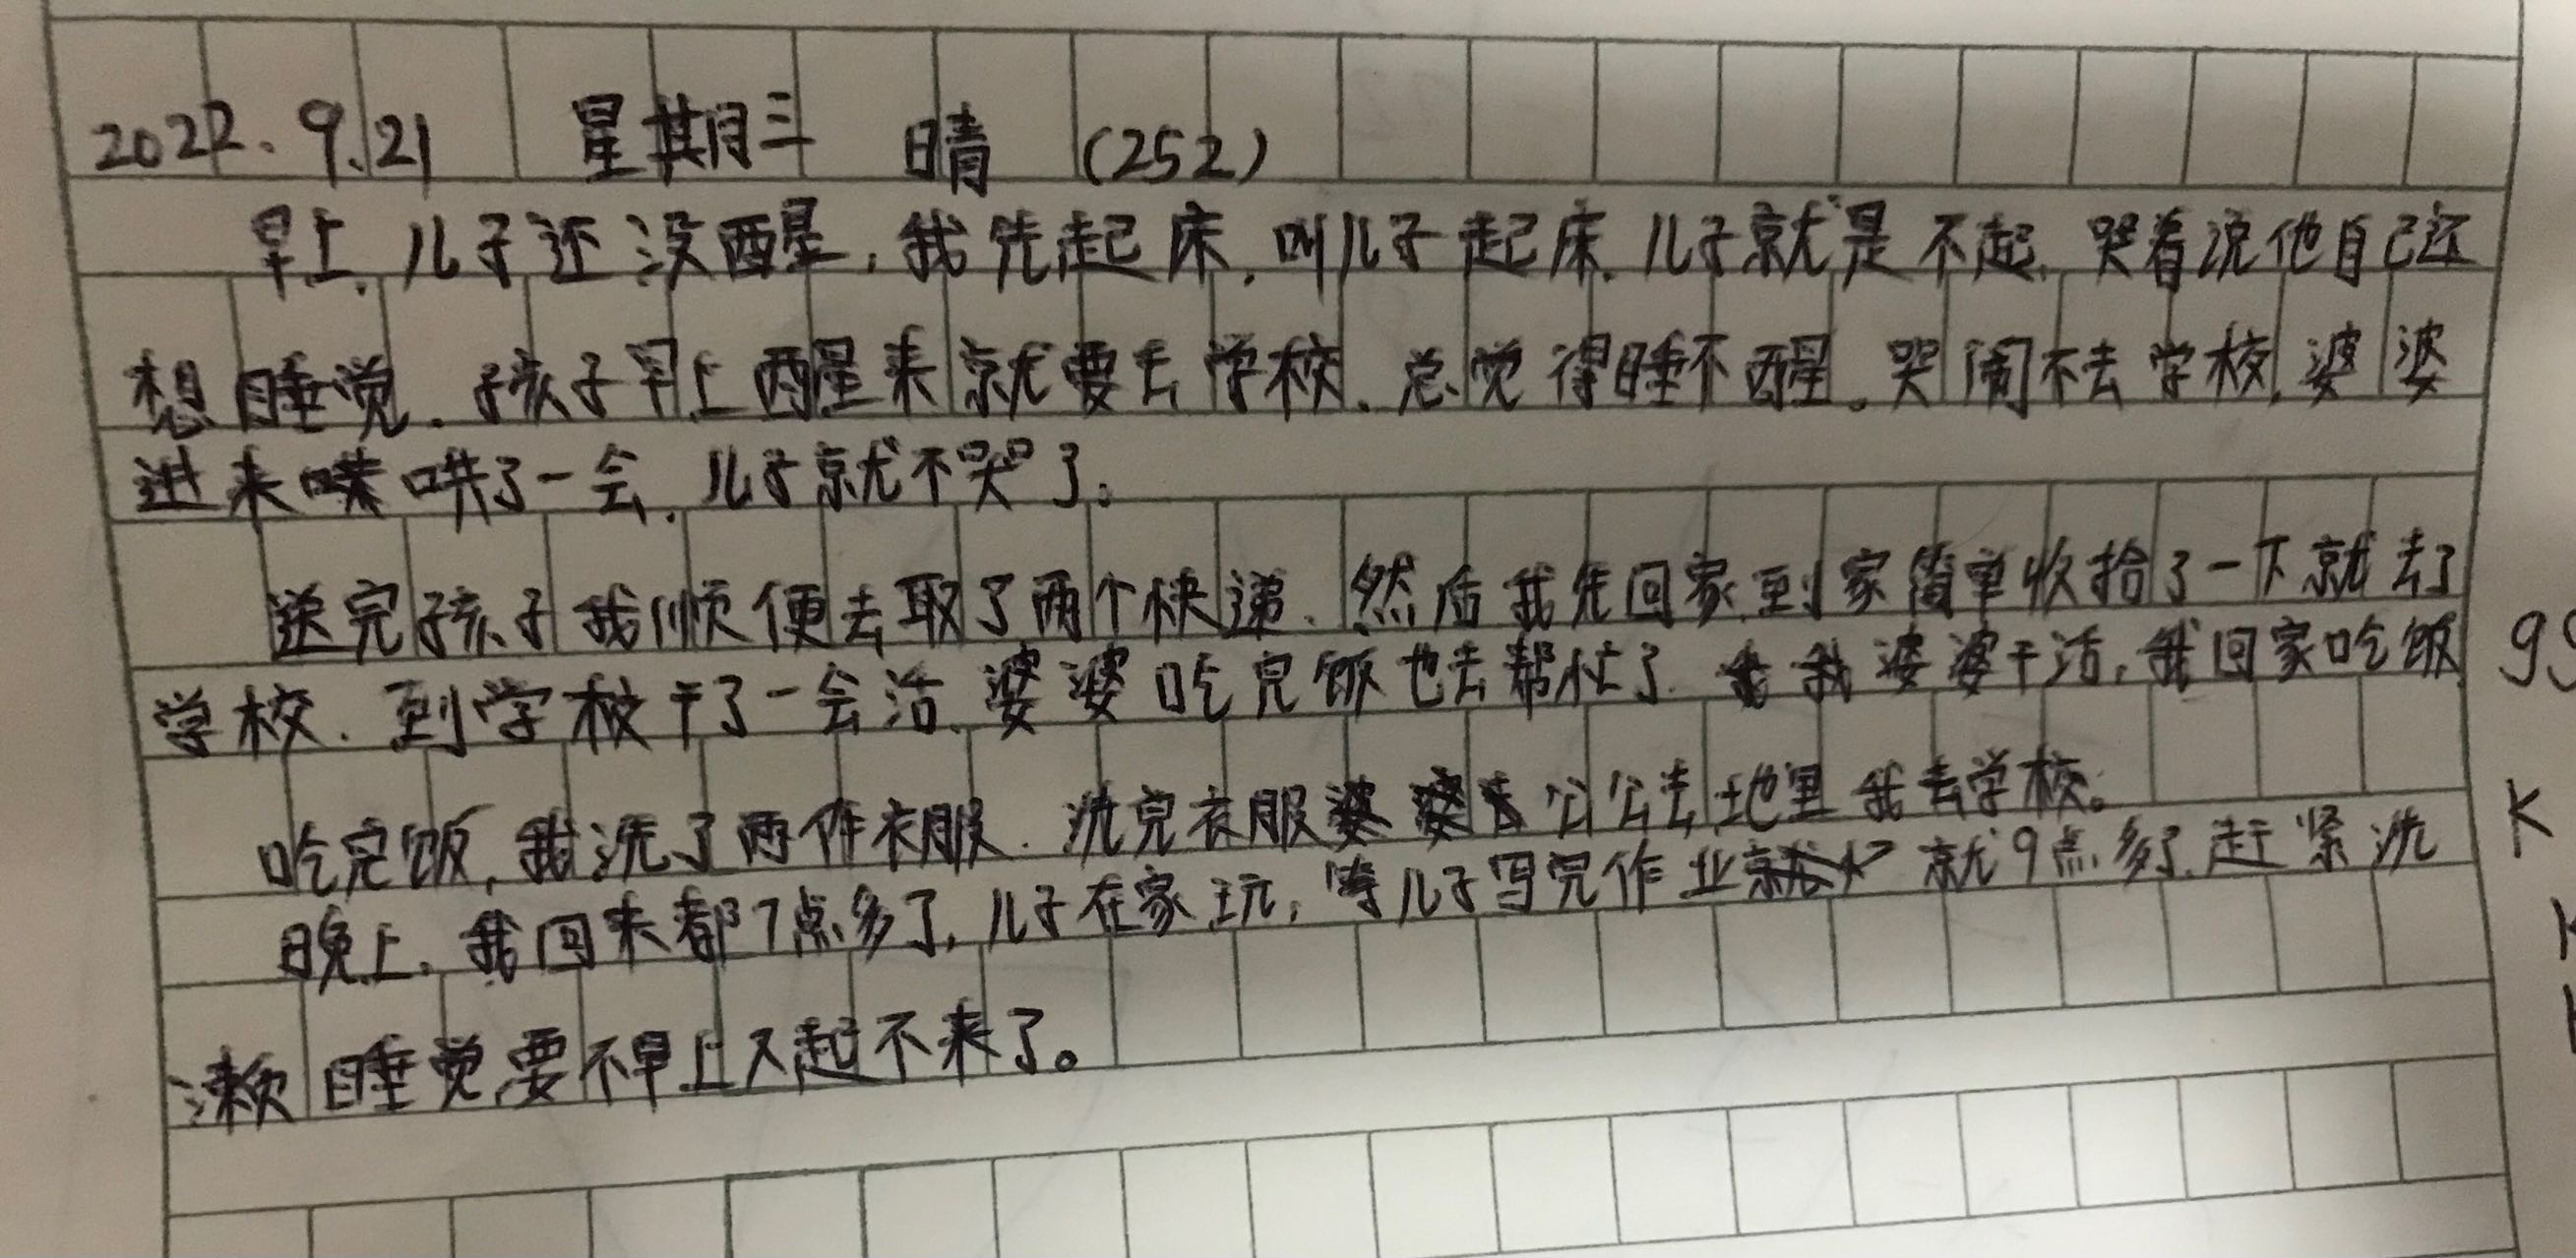 2022.9.21 星期三 晴 (252)
早上,儿子还没醒,我先起床,叫儿子起床,儿子就是不起,哭着说他自己还
想睡觉.孩子早上醒来就要去学校.总觉得睡不醒。哭闹不去学校,婆婆
进来哄了一会,儿子就不哭了。
送完孩子我顺便去取了两个快递.然后我先回家,到家简单收拾了一下就去了
学校.到学校干了一会活,婆婆吃完饭也去帮忙了.我婆婆干活,我回家吃饭
吃完饭,我洗了两件衣服.洗完衣服公公去地里我去学校。
晚上,我回来都7点多了,儿子在家玩,等儿子写完作业就9点多了.赶紧洗
漱睡觉,要不早上又起不来了。
K